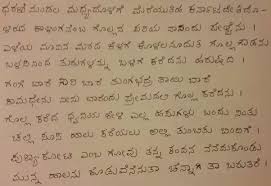 ಧರಣಿ ಮಂಡಲ ಮಧ್ಯದೊಳಗೆ ಮೆರೆಯುತಿಹ ಕರ್ನಾಟದೇಶದೊ-
ಳಿರುವ ಕಾಳಿಂಗನೆಂಬ ಗೊಲ್ಲನ ಪರಿಯ ನಾನೆಂತು ಪೇಳ್ವೆನು |
ಎಳೆಯ ಮಾವಿನ ಮರದ ಕೆಳಗೆ ಕೊಳಲನೂದುತ ಗೊಲ್ಲ ಗೌಡನು
ಬಳಸಿನಿಂದ ತುರುಗಳನ್ನು ಬಳಿಗೆ ಕರೆದನು ಹರುಷದಿ |
ಗಂಗೆ ಬಾರೆ ಗೌರಿ ಬಾರೆ ತುಂಗಭದ್ರೆ ತಾಯಿ ಬಾರೆ
ಕಾಮಧೇನು ನೀನು ಬಾರೆಂದು ಪ್ರೇಮದಲಿ ಗೊಲ್ಲ ಕರೆದನು
ಗೊಲ್ಲ ಕರೆದ ಧ್ವನಿಯ ಕೇಳಿ ಎಲ್ಲ ಹಸುಗಳು ಬಂದು ನಿಂತು
ಚೆಲ್ಲಿ ಸೂಸಿ ಹಾಲು ಕರೆಯಲು ಅಲ್ಲಿ ತುಂಬಿತು ಬಿಂದಿಗೆ |
ಪುಣ್ಯಕೋಟಿ ಎಂಬ ಗೋವು ತನ್ನ ಕಂದನ ನೆನೆದುಕೊಂಡು
ಮುನ್ನ ಹಾಲನು ಕೊಡುವೆನೆನುತಾ ಚೆನ್ನಾಗಿ ತಾ ಬರುತಿರೆ |